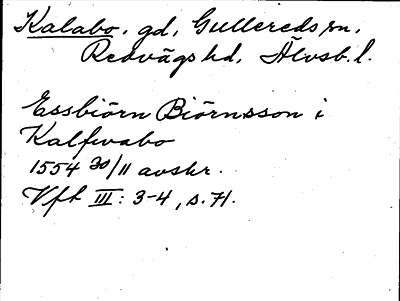 Kalabo, gd, Gullereds sn,
Redvägs hd, Älvsb. l.
Essbiörn Biörnsson i
Kalfwabo
1554 30/11 avskr.
Vft III: 3-4, s. 71.